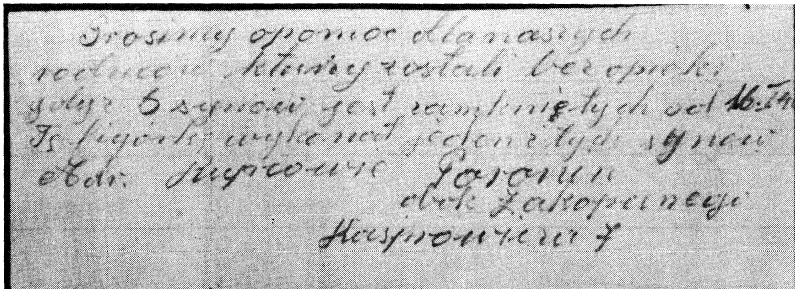 Prosimy o pomoc dla naszych
rodzicow ktury zostali bez opieki
gdyz 5 synów jest zamkniętych od 16.I.40
Ts figórkę wykonał jeden z tych synow
Adr. Poronin
obok Zakopanego
Kasprowicza 7